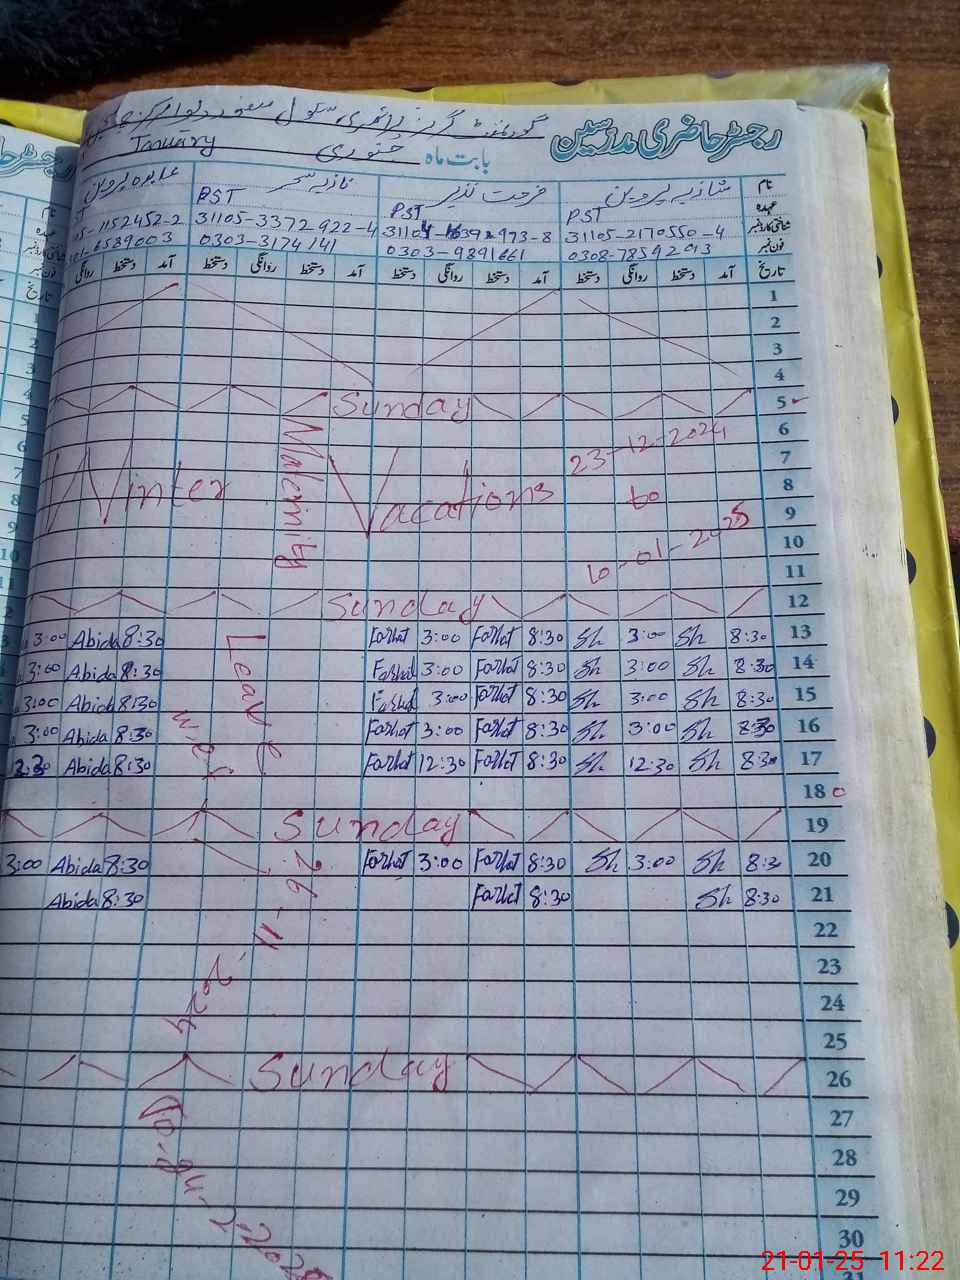 رجسٹر حاضری مدرسین
گورنمنٹ گرلز پرائمری سکول
بابت ماہ جنوری January
نام شازیہ پروین فرحت نذیر نازیہ سحر عابدہ پروین
عہدہ PST PST PST
31105-2170550-4 31105-3372-922-4 5-1152452-2
فون نمبر 0308-7859293 0303-9891661 0303-3174141 6589003
تاریخ آمد دستخط روانگی دستخط آمد دستخط روانگی دستخط آمد دستخط روانگی دستخط آمد دستخط روانگی
1
2
3
4
5 Sunday
6
7
8
9
10
11
Winter Vacations 23-12-2024 to 10-01-2025
12 Sunday
13 8:30 Sh 3:00 Sh 8:30 Farhat 3:00 Farhat 8:30 Abida 3:00
14 8:30 Sh 3:00 Sh 8:30 Farhat 3:00 Farhat 8:30 Abida 3:00
15 8:30 Sh 3:00 Sh 8:30 Farhat 3:00 Farhat 8:30 Abida 3:00
16 8:30 Sh 3:00 Sh 8:30 Farhat 3:00 Farhat 8:30 Abida 3:00
17 8:30 Sh 12:30 Sh 8:30 Farhat 12:30 Farhat 8:30 Abida
18
19 Sunday
20 8:30 Sh 3:00 Sh 8:30 Farhat 3:00 Farhat 8:30 Abida 3:00
21 8:30 Sh 8:30 Farhat 8:30 Abida
22
23
24
25
26 Sunday
27
28
29
30
31
Maternity Leave w.e.f 26-11-2024 To
21-01-25 11:22